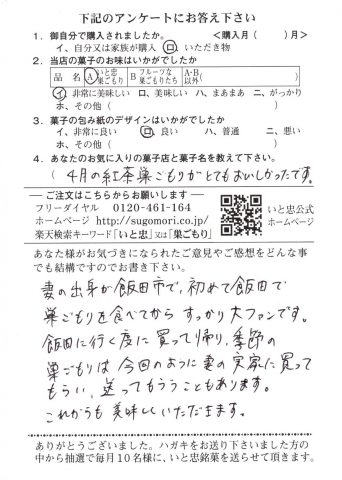 下記のアンケートにお答え下さい
1. 御自分で購入されましたか。 <購入月（ ）月>
イ、自分又は家族が購入 ロ、いただき物
2. 当店の菓子のお味はいかがでしたか
品名 A いと忠巣ごもり B フルーツな巣ごもりたち A・B以外（ ）
イ、非常に美味しい ロ、美味しい ハ、まあまあ ニ、がっかり
ホ、その他（ ）
3. 菓子の包み紙のデザインはいかがでしたか
イ、非常に良い ロ、良い ハ、普通 ニ、悪い
ホ、その他（ ）
4. あなたのお気に入りの菓子店と菓子名を教えて下さい。
（ 4月の紅茶巣ごもりがとてもおいしかったです。
ご注文はこちらからお願いします
フリーダイヤル 0120-461-164
ホームページ http://sugomori.co.jp/
楽天検索キーワード「いと忠」又は「巣ごもり」
いと忠公式
ホームページ
あなた様がお気づきになられたご意見やご感想をどんな事
でも結構ですのでお書き下さい。
妻の出身が飯田市で、初めて飯田で
巣ごもりを食べてから すっかり大ファンです。
飯田に行く度に買って帰り、季節の
巣ごもりは今回のように妻の実家に買って
もらい、送ってもらうこともあります。
これからも美味しくいただきます。
ありがとうございました。ハガキをお送り下さいました方の
中から抽選で毎月10名様に、いと忠銘菓を送らせて頂きます。